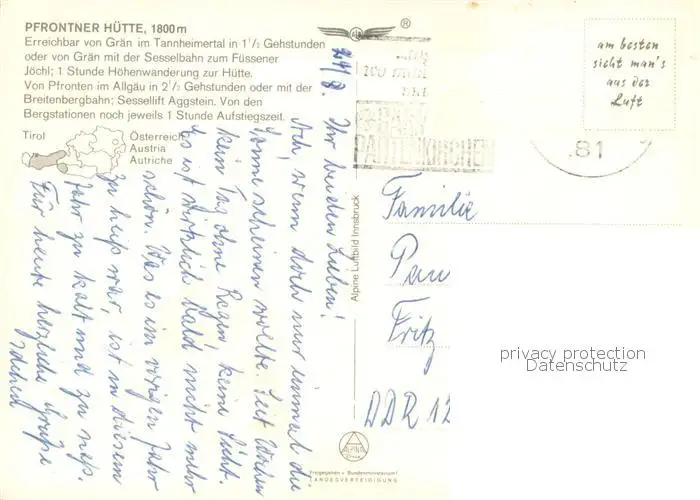 PFRONTNER HÜTTE, 1800 m
Erreichbar von Grän im Tannheimertal in 1½ Gehstunden
oder von Grän mit der Sesselbahn zum Füssener
Jöchl; 1 Stunde Höhenwanderung zur Hütte.
Von Pfronten im Allgäu in 2½ Gehstunden oder mit der
Breitenbergbahn; Sessellift Aggstein. Von den
Bergstationen noch jeweils 1 Stunde Aufstiegszeit.
Tirol
Österreich
Austria
Autriche
24/8.
Ihr beiden Lieben!
Ach, wenn doch nur einmal die
Sonne scheinen wollte. Seit Wochen
kein Tag ohne Regen, keine Sicht.
Es ist wirklich bald nicht mehr
schön. Was es im vorigen Jahr
zu heiß war, ist in diesem
Jahr zu kalt und zu naß.
Für heute herzliche Grüße
Alpine Luftbild Innsbruck
®
PARTENKIRCHEN
81
am besten
sieht man's
aus der
Luft
Familie
Pau
Fritz
DDR 12
ALPINE
Freigegeben v. Bundesministerium f.
LANDESVERTEIDIGUNG
privacy protection
Datenschutz